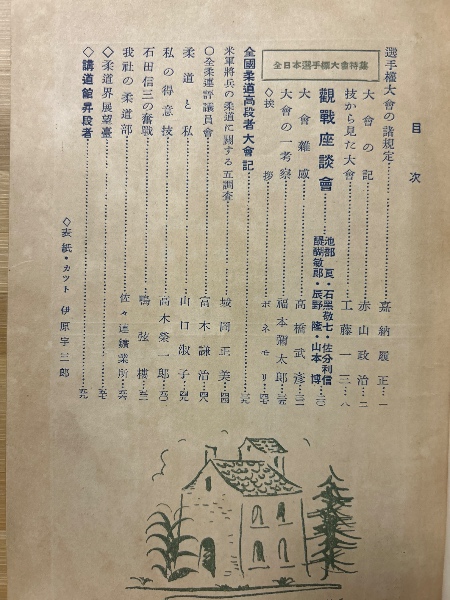 目次
全日本選手權大會特集
選手權大會の諸規定 嘉納履正 一
大會の記 赤山政治 二
技から見た大會 工藤一三 八
觀戰座談會 池部 亘・石黑敬七・佐分利信 醍醐敏郎・辰野 隆・山本 博
大會雜感 高橋武彦
大會の一考察 福本彌太郎
◇挨拶 ボネモリ
全國柔道高段者大會記
米軍將兵の柔道に關する五調査 城岡正美
〇全柔連評議員會 富木謙治
柔道と私 山口淑子
私の得意技 高木榮一郎
石田信三の奮戰 鴨弦樓
我社の柔道部 佐々連鑛業所
◇柔道界展望臺
◇講道館昇段者
◇表紙・カツト 伊原宇三郎